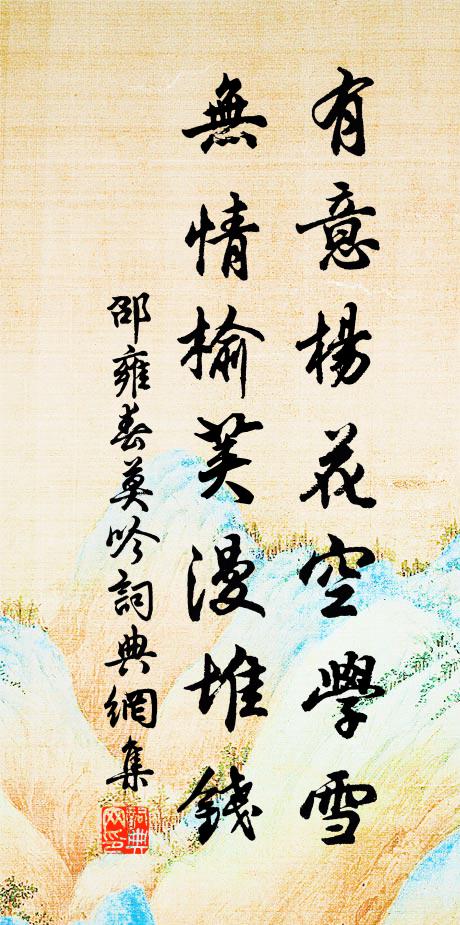 有意楊花空學雪
無情榆莢漫堆錢
邵雍春莫吟詞典網集
詞典
网印